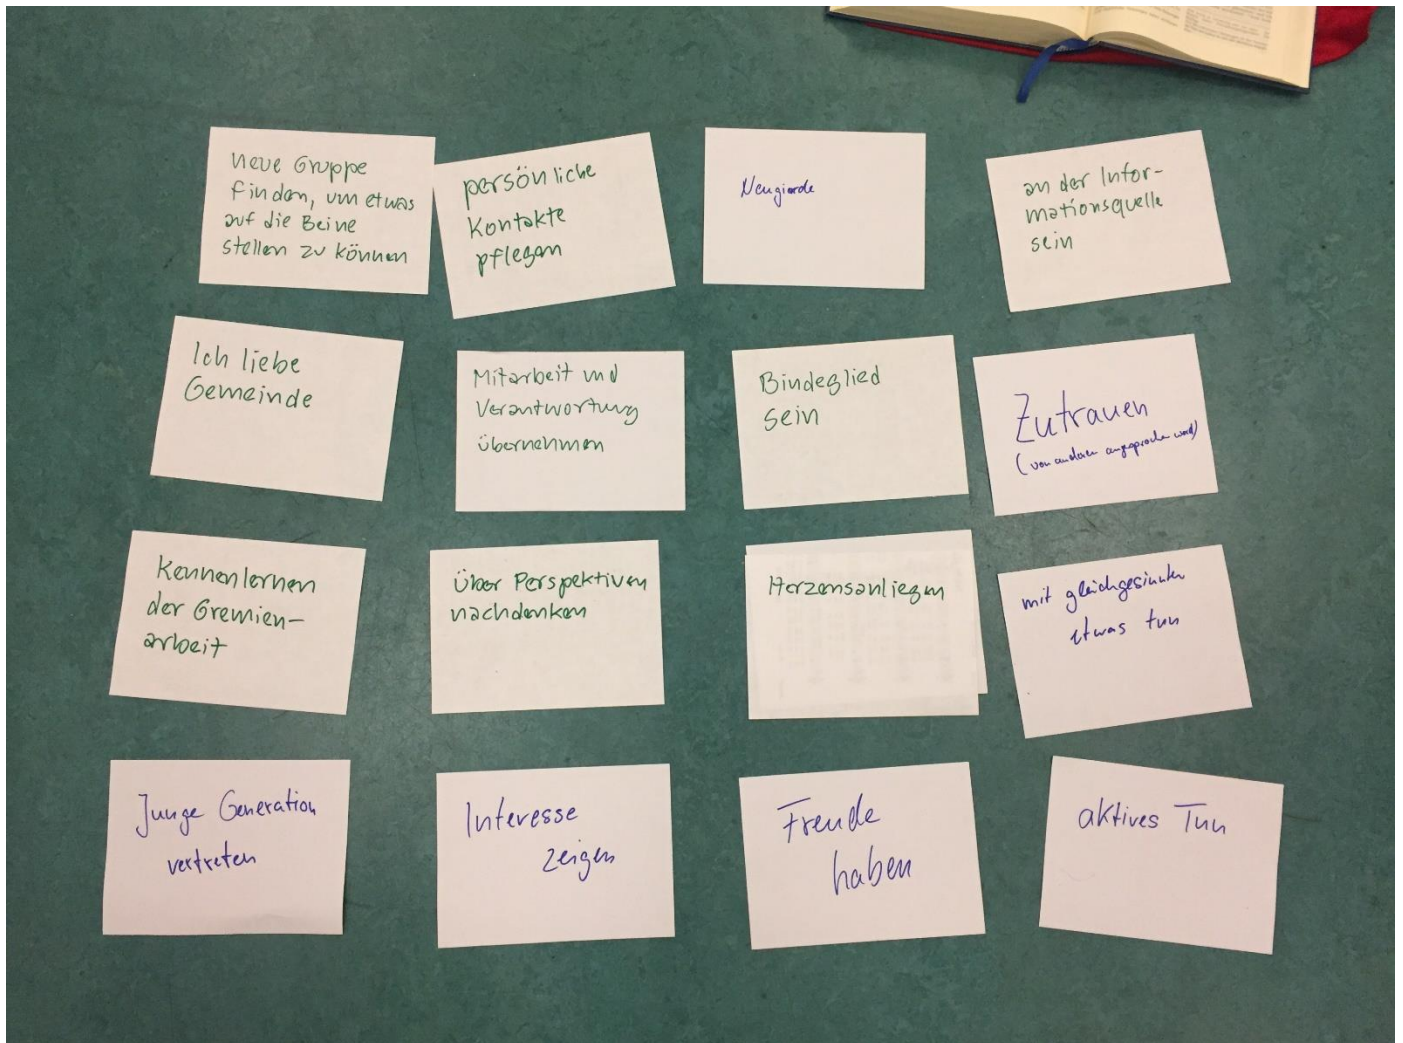 neue Gruppe
finden, um etwas
auf die Beine
stellen zu können
persönliche
Kontakte
pflegen
Neugierde
an der Infor-
mationsquelle
sein
Ich liebe
Gemeinde
Mitarbeit und
Verantwortung
übernehmen
Bindeglied
sein
Zutrauen
(von anderen angesprochen werd)
Kennenlernen
der Gremien-
arbeit
über Perspektiven
nachdenken
Herzensanliegen
mit gleichgesinnten
etwas tun
Junge Generation
vertreten
Interesse
zeigen
Freude
haben
aktives Tun